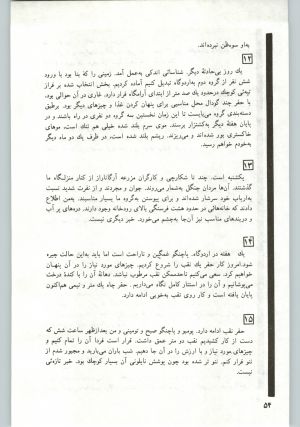 به‌او سوءظن نبرده‌اند.
۱۲
یك روز بی‌حادثهٔ دیگر. شناسائی اندکی به‌عمل آمد. زمینی را که بنا بود با ورود
شش نفر از گروه دوم به‌اردوگاه تبدیل شود، آماده کردیم. بخش انتخاب شده بر فراز
تپه‌ئی کوچك درحدود یك صد متر از ابتدای آرامگاه قرار دارد. غاری در آن حوالی بود.
با حفر چند گودال محل مناسبی برای پنهان کردن غذا و چیزهای دیگر بود. برطبق
دسته‌بندی گروه می‌بایست تا این زمان نخستین سه گروه دو نفری در راه باشند و در
پایان هفتهٔ دیگر به‌کشتزار برسند. موی سرم بلند شده خیلی هم تنك است، موهای
خاکستری بور شده‌اند و می‌ریزند. ریشم بلند شده است، در ظرف یك دو ماه دیگر
به‌خودم خواهم رسید.
۱۳
یکشنبه است. چند تا شکارچی و کارگران مزرعه آرگاناراز از کنار منزلگاه ما
گذشتند. آن‌ها مردان جنگل به‌شمار می‌روند. جوان و مجردند و از نفرت شدید نسبت
به‌ارباب خود سرشار شده‌اند و برای پیوستن به‌گروه ما بسیار مناسبند. به‌من اطلاع
دادند که خانه‌هائی در حدود هشت فرسنگی بالای رودخانه وجود دارند. دره‌های پر آب
و دربندهای مناسب نیز آن‌جا به‌چشم می‌خورد. خبر دیگری نیست.
۱۴
یك هفته در اردوگاه. پاچنگو غمگین و ناراحت است اما باید به‌این حالت چیره
شود. امروز کار حفر یك نقب را شروع کردیم. چیزهای مورد نیاز را در آن پنهان
خواهیم کرد. سعی می‌کنیم تاحدممکن نقب برطوبت نباشد. دهانهٔ آن را با کندهٔ درخت
می‌پوشانیم و آن را در استتار کامل نگاه می‌داریم. حفر چاه یك متر و نیمی هم‌اکنون
پایان یافته است و کار روی نقب به‌خوبی ادامه دارد.
۱۵
حفر نقب ادامه دارد. پومبو و پاچنگو صبح و تومینی و من بعدازظهر ساعت شش که
دست از کار کشیدیم نقب دو متر عمق داشت. قرار است فردا آن را تمام کنیم و
چیزهای مورد نیاز و با ارزش را در آن جا دهیم. شب باران می‌بارید و مجبور شدم از
ننو فرار کنم. ننو تر شده بود چون پوشش نایلونی آن بسیار کوچك بود. خبر تازه‌ئی
نیست.
۵۴